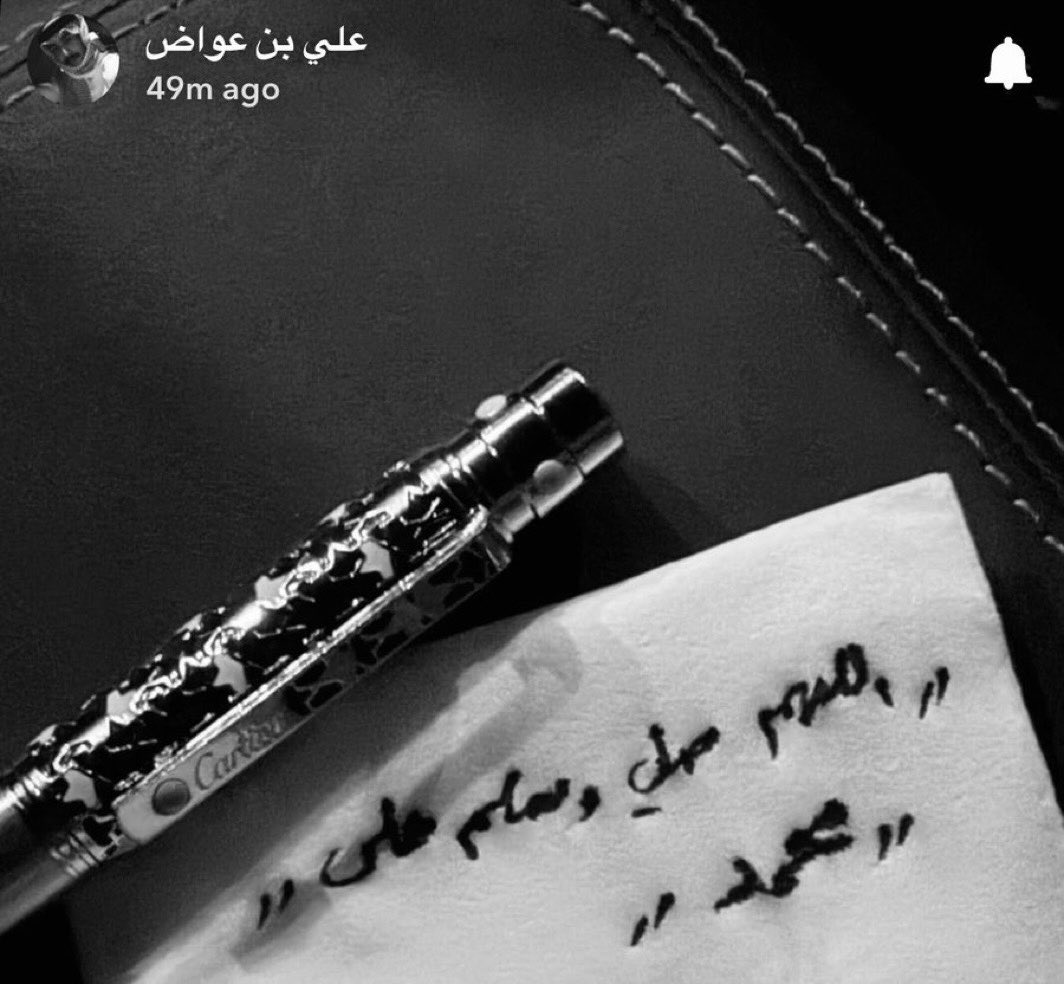 علي بن عواض
49m ago
Cartier
,, اللهم صلِ وسلم على ,,
,, محمد ,,